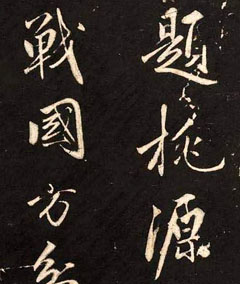 題桃源
戰國方